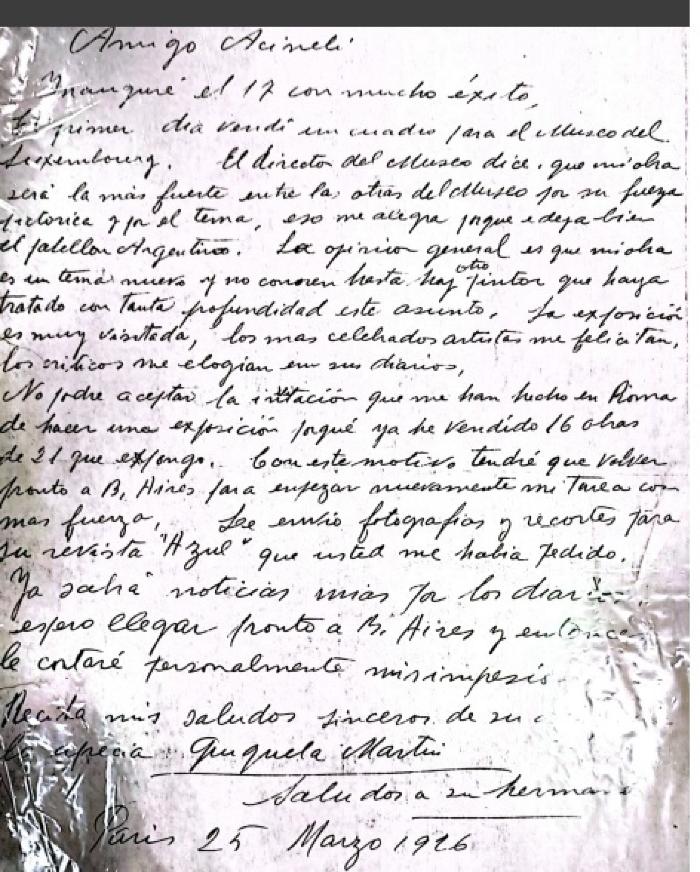 Amigo Acineli
Inauguré el 17 con mucho éxito,
El primer dia vendí un cuadro para el Museo del
Luxembourg. El director del Museo dice, que mi obra
será la más fuerte entre las otras del Museo por su fuerza
pictorica y por el tema, eso me alegra porque deja bien
el pabellon Argentino. La opinion general es que mi obra
es un tema nuevo y no conocen hasta hoy otro pintor que haya
tratado con tanta profundidad este asunto. La exposición
es muy visitada, los mas celebrados artistas me felicitan,
los criticos me elogian em sus diarios,
No podre aceptar la que me han hecho en Roma
de hacer una exposición porqué ya he vendido 16 obras
de 21 que expongo. Con este motivo tendré que volver
pronto a B, Aires para empezar nuevamente mi tarea con
mas fuerza, Le envio fotografias y recortes para
su revista "Azul" que usted me habia pedido.
Ya sabrá noticias mias por los diarios
espero llegar pronto a B. Aires y entonces
le contaré personalmente mis
Reciba mis saludos sinceros de su
aprecia Quinquela Martin
Saludos a su herman
Paris 25 Marzo 1926